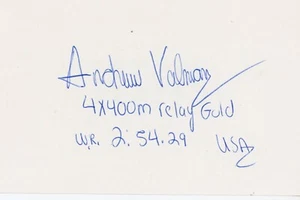 Andrew Valmon
4X400m relay Gold
W.R. 2:54.29 USA